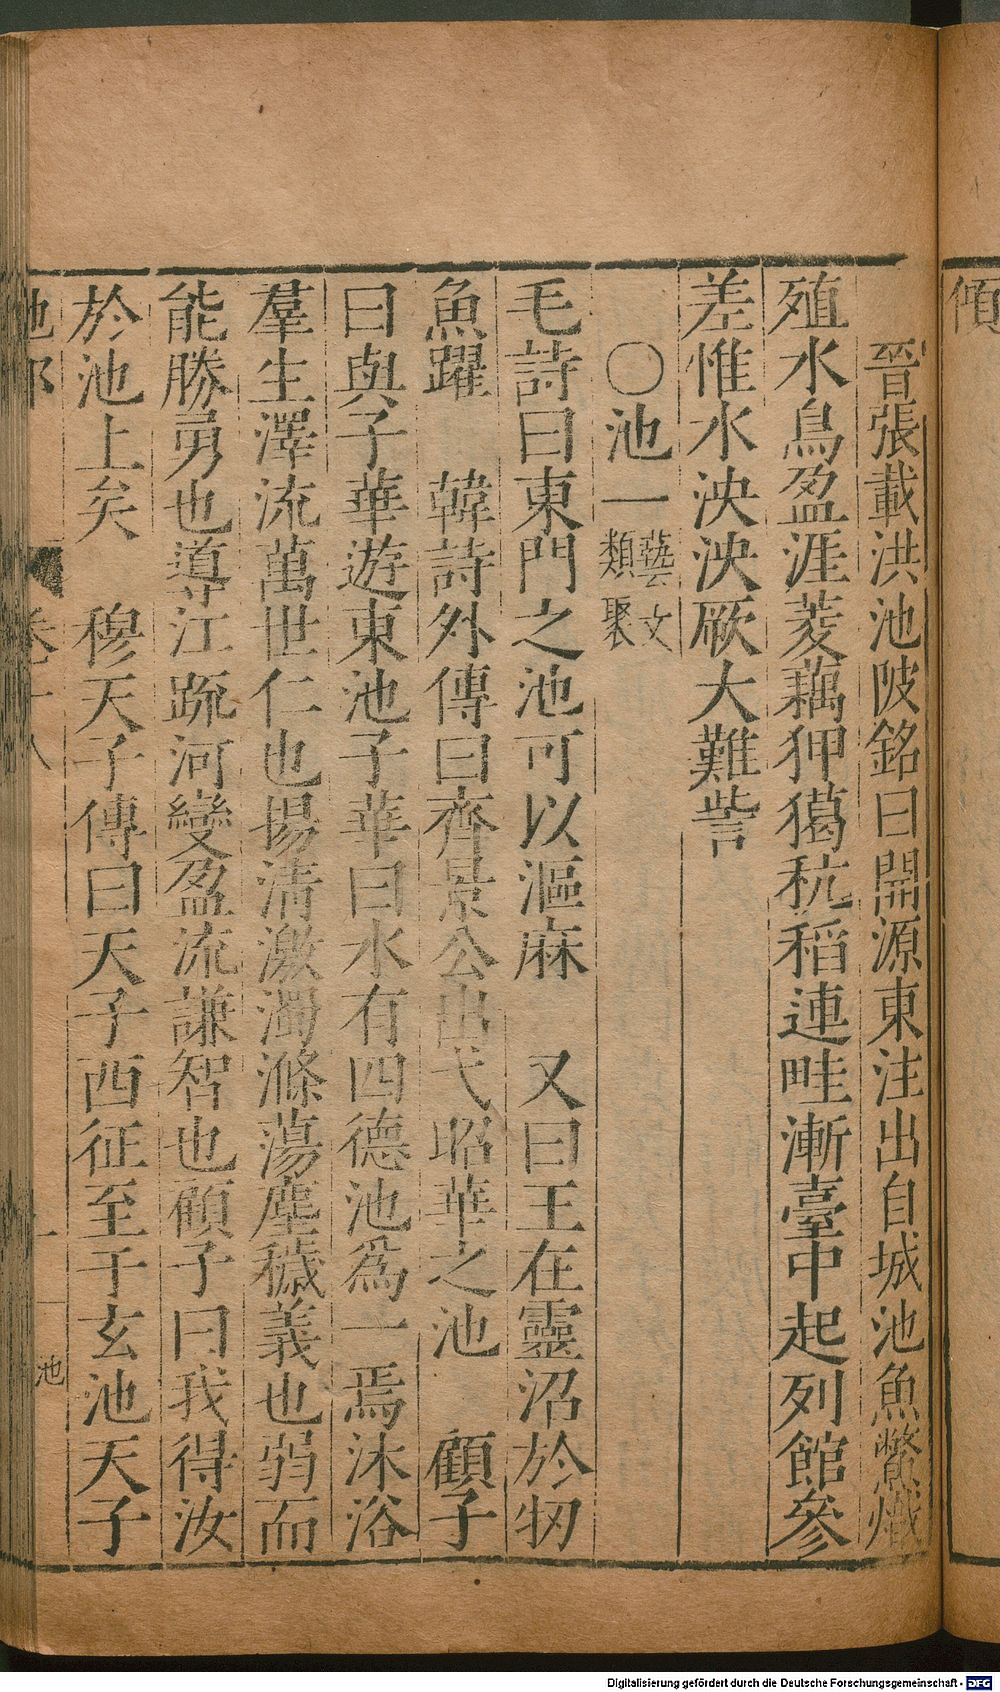 傾
晉張載洪池陂銘曰開源東注出自城池魚鱉熾
殖水鳥盈涯菱藕狎獦秔稻連畦漸臺中起列館參
差惟水泱泱厥大難訾
〇池一藝文類聚
毛詩曰東門之池可以漚麻　又曰王在靈沼於牣
魚躍　韓詩外傳曰齊景公出弋昭華之池　顧子
曰與子華遊東池子華曰水有四德池爲一焉沐浴
羣生澤流萬世仁也揚清激濁滌蕩塵穢義也弱而
能勝勇也導江疏河變盈流謙智也顧子曰我得汝
於池上矣　穆天子傳曰天子西征至于玄池天子
池
Digitalisierung gefördert durch die Deutsche Forschungsgemeinschaft - DFG